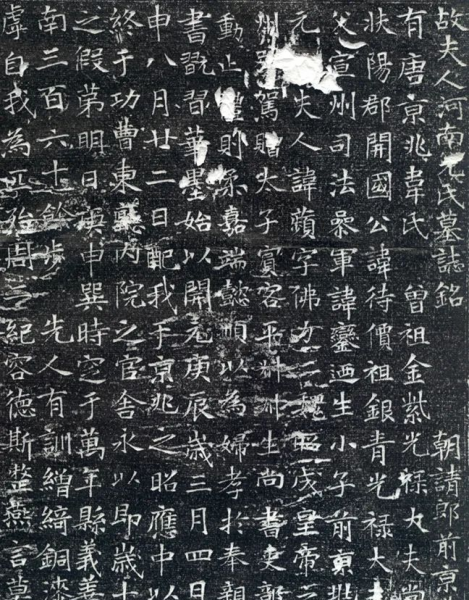 故夫人河南元氏墓誌銘 朝請郎前京
有唐京兆韋氏 曾祖金紫光祿大夫尚
扶陽郡開國公諱待價祖銀青光祿大夫
父宣州司法參軍諱鑾迺生小子前京兆
元 夫人諱蘋字佛力二魏昭成皇帝之
州 駕贈太子賓客平叔叔生尚書吏部
動止 則柔嘉端懿順以為婦孝於奉親
書翫習華墨始以開元庚辰歲三月四日
申八月廿二日配我于京兆之昭應中以
終于功曹東廳內院之官舍永以即歲十
之假第明日庚申巽時窆于萬年縣義善
南三百六十餘步 先人有訓繒綺銅漆
虖自我為匹殆周二紀容德斯整燕言莫